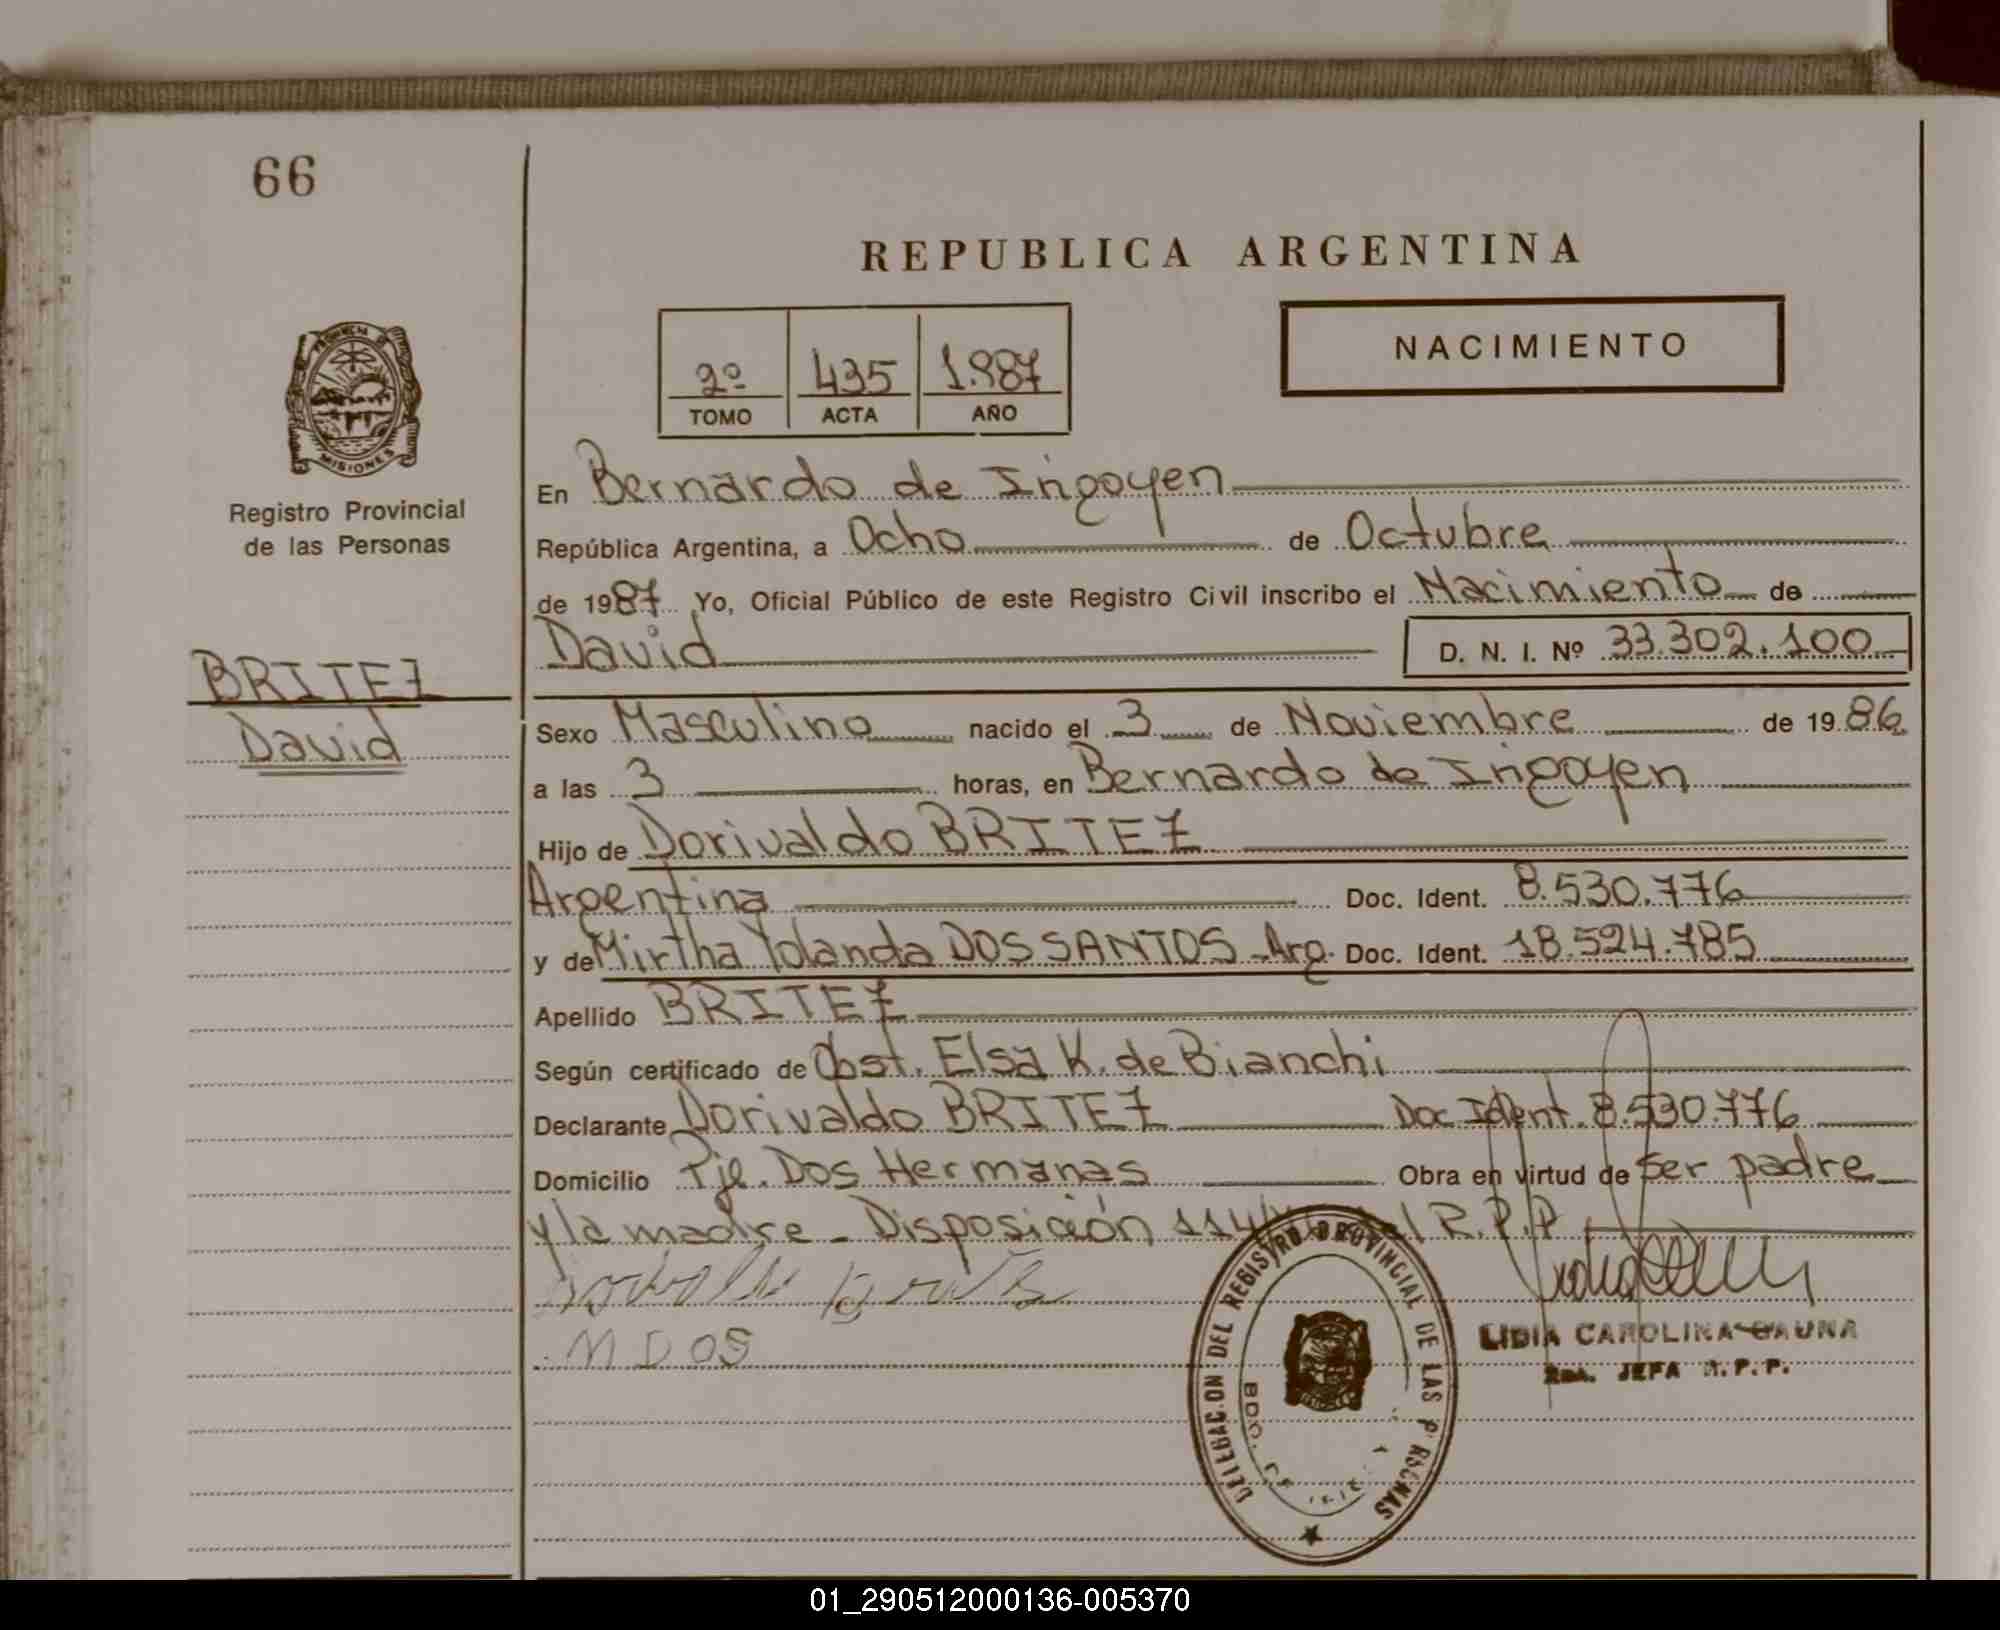 66
REPUBLICA ARGENTINA
2º 435 1.987
TOMO ACTA AÑO
NACIMIENTO
PROVINCIA DE
MISIONES
Registro Provincial
de las Personas
BRITEZ
David
En Bernardo de Irigoyen
República Argentina, a Ocho de Octubre
de 1987 Yo, Oficial Público de este Registro Civil inscribo el Nacimiento de
David D. N. I. Nº 33.302.100
Sexo Masculino nacido el 3 de Noviembre de 1986
a las 3 horas, en Bernardo de Irigoyen
Hijo de Dorivaldo BRITEZ
Argentina Doc. Ident. 8.530.776
y de Mirtha Yolanda DOS SANTOS - Arg. Doc. Ident. 18.524.785
Apellido BRITEZ
Según certificado de Obst. Elsa K. de Bianchi
Declarante Dorivaldo BRITEZ Doc Ident. 8.530.776
Domicilio Pje. Dos Hermanas Obra en virtud de ser padre
y la madre - Disposición R.P.P.
M DOS
DELEGACION DEL REGISTRO PROVINCIAL DE LAS PERSONAS
BDO. DE
LIDIA CAROLINA GAUNA
JEFA R.P.P.
01_290512000136-005370